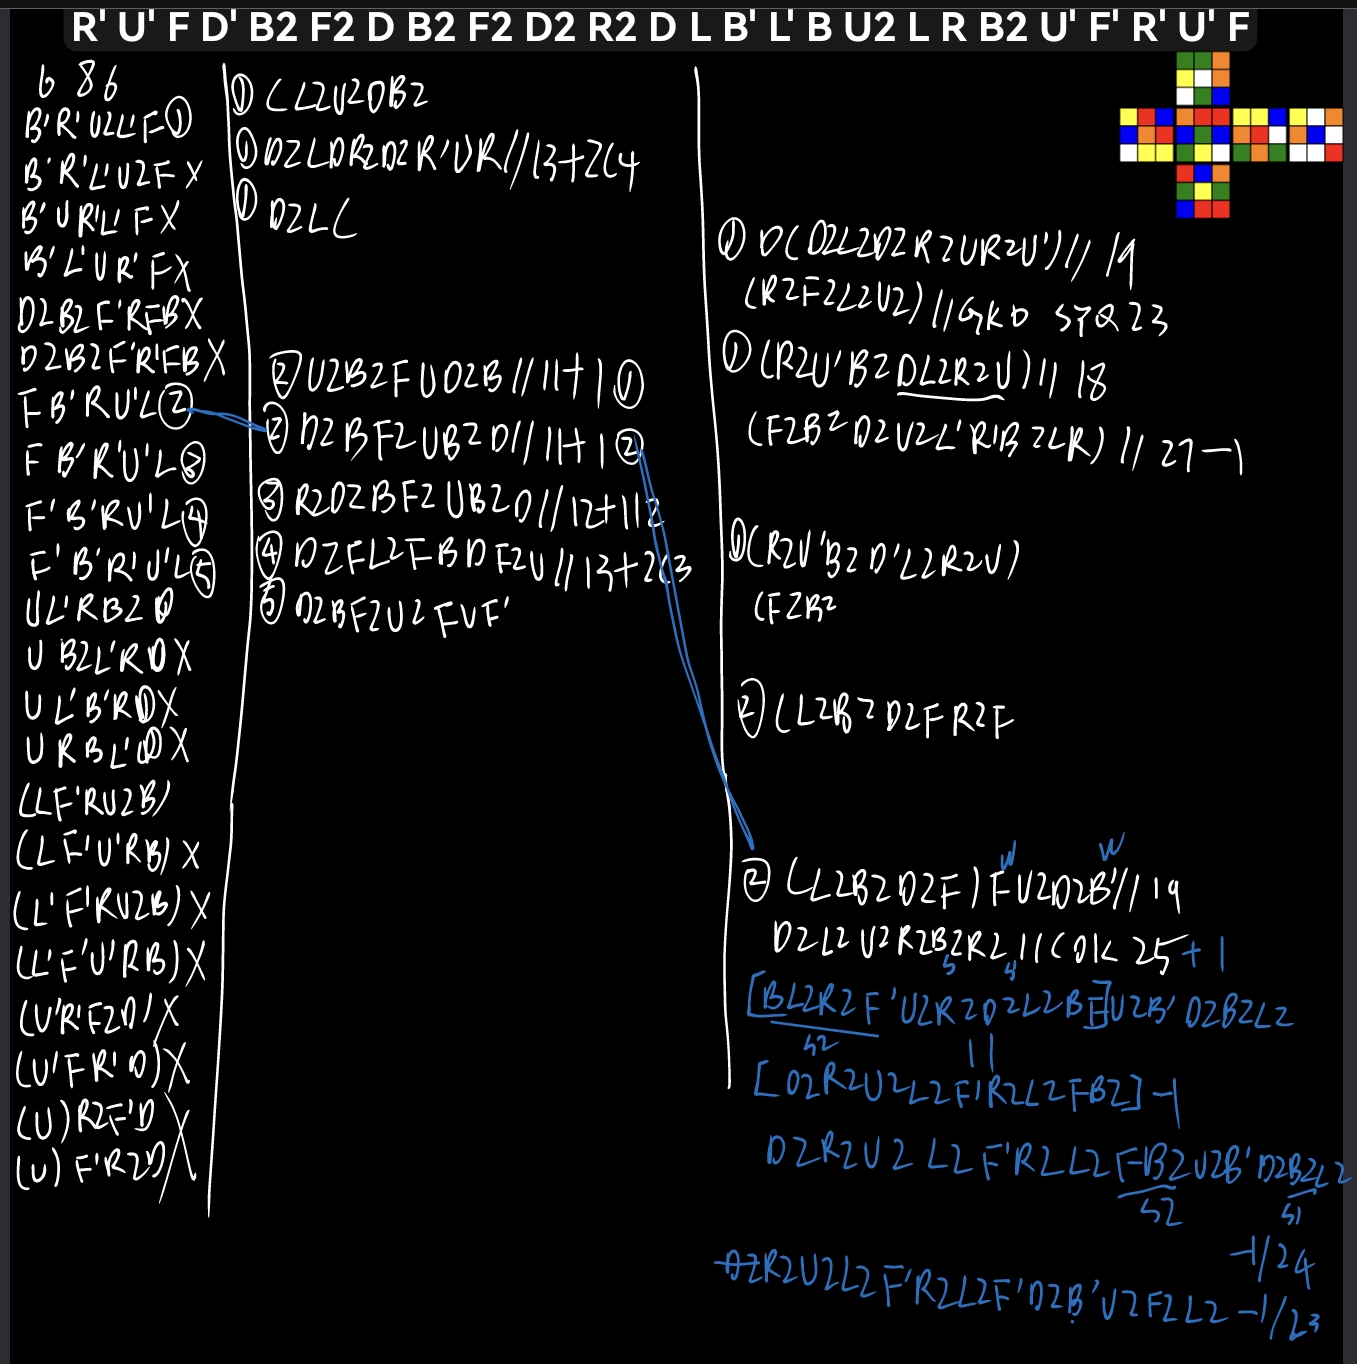 R' U' F D' B2 F2 D B2 F2 D2 R2 D L B' L' B U2 L R B2 U' F' R' U' F
6 8 6
B'R'U2L'F①
B'R'L'U2F X
B'UR'L'F X
B'L'UR'F X
D2B2F'RFB X
D2B2F'R'FB X
FB'RU'L②
FB'R'U'L③
F'B'RU'L④
F'B'R'U'L⑤
UL'RB2D
UB2L'RD X
UL'B'RD X
URBL'D X
(LF'RU2B)
(LF'U'RB) X
(L'F'RU2B) X
(L'F'U'RB) X
(U'R'F2D) X
(U'FR'D) X
(U)R2F'D
(U)F'R2D X
① (L2U2DB2
① D2LDR2D2R'UR//13+2C4
① D2L(
② U2B2FUD2B//11+1①
② D2BF2UB2D//11+1②
③ R2D2BF2UB2D//12+1
④ D2FL2FBDF2U//13+2C3
⑤ D2BF2U2FUF'
① D(D2L2D2R2UR2U')//19
(R2F2L2U2)//GKD 5TQ23
① (R2U'B2DL2R2U)//18
(F2B2D2U2L'R'B2LR)//27-1
① (R2U'B2D'L2R2U)
(F2B2
② (L2B2D2FR2F
W W
② (L2B2D2F)FU2D2B'//19
D2L2U2R2B2R2//COK 25+1
[BL2R2F'U2R2D2L2BF]U2B'D2B2L2
S2
[D2R2U2L2F'R2L2FB2]-1
D2R2U2L2F'R2L2FB2U2B'D2B2L2
S2 S1
-1/24
D2R2U2L2F'R2L2F'D2B'U2F2L2-1/23